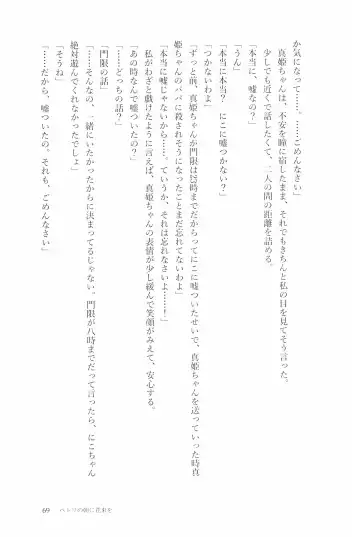 か気になって……。……ごめんなさい」
真姫ちゃんは、不安を瞳に宿したまま、それでもきちんと私の目を見てそう言った。
少しでも近くで話したくて、二人の間の距離を詰める。
「本当に、嘘なの？」
「うん」
「本当に本当？　にこに嘘つかない？」
「つかないわよ」
「ずっと前、真姫ちゃんが門限は23時までだからってにこに嘘ついたせいで、真姫ちゃんを送っていった時真
姫ちゃんのパパに殺されそうになったことまだ忘れてないわよ」
「本当に嘘じゃないから……。ていうか、それは忘れなさいよ……！」
私がわざと戯けたように言えば、真姫ちゃんの表情が少し緩んで笑顔がみえて、安心する。
「あの時なんで嘘ついたの？」
「……どっちの話？」
「門限の話」
「……そんなの、一緒にいたかったからに決まってるじゃない。門限が八時までだって言ったら、にこちゃん
絶対遊んでくれなかったでしょ」
「そうね」
「……だから、嘘ついたの。それも、ごめんなさい」
69